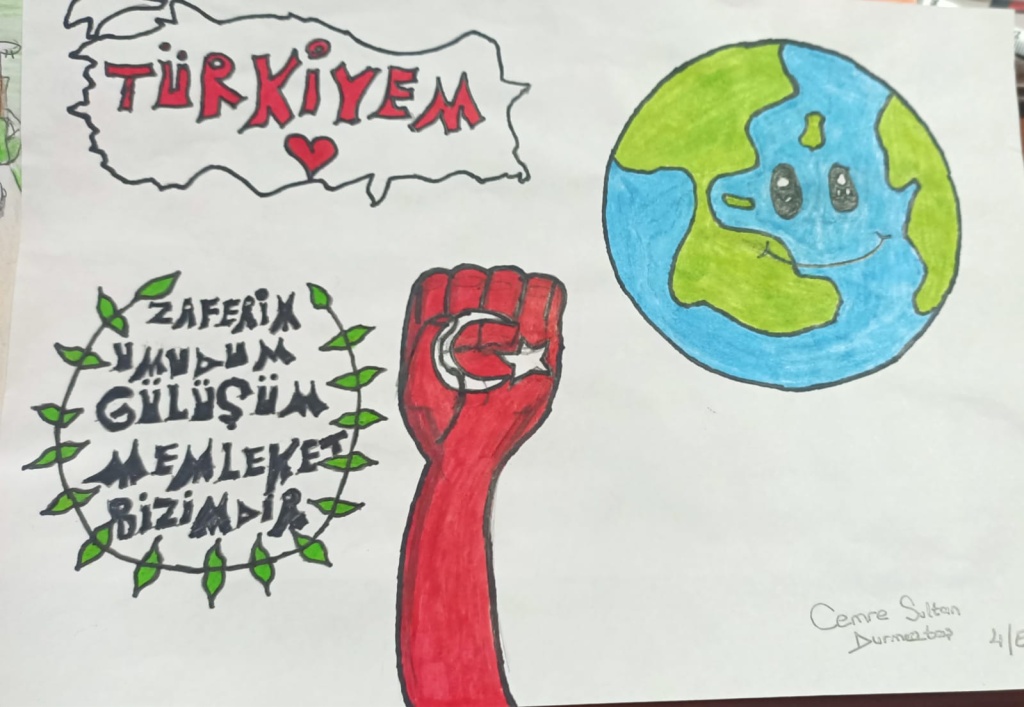 TÜRKİYEM
ZAFERİM
UMUDUM
GÜLÜŞÜM
MEMLEKET
BİZİMDİR
Cemre Sultan
4/E